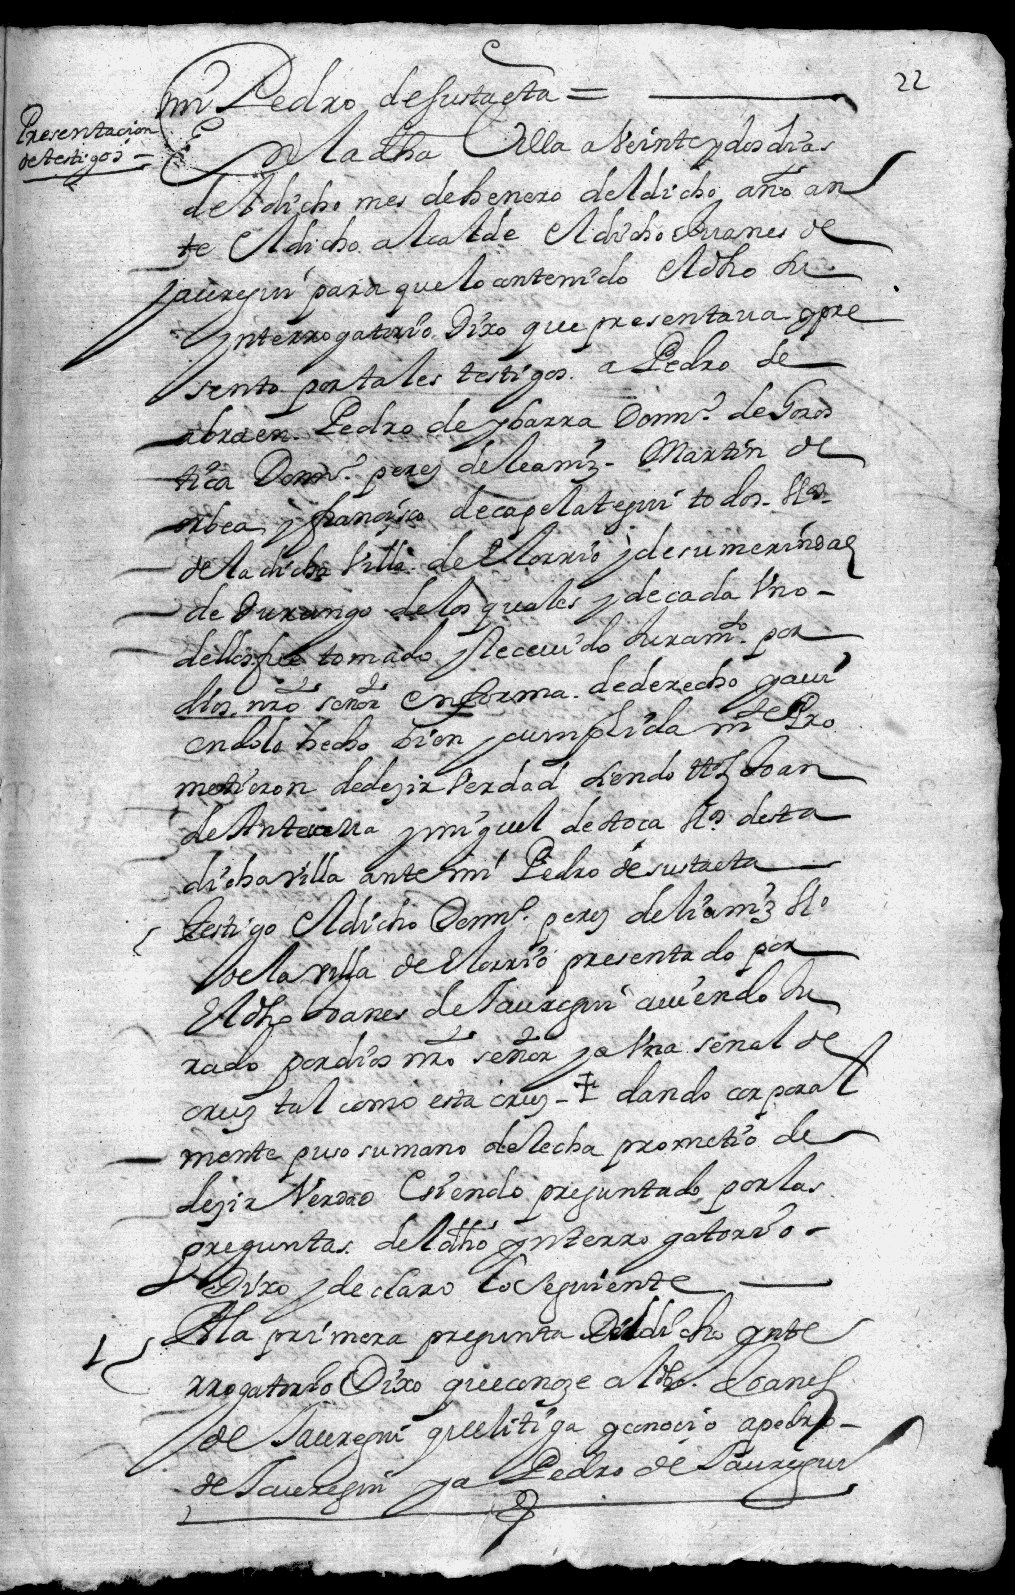 22
mi Pedro de sustaeta =
Presentacion
de testigos –
En la dha Villa a Veinte y dos dias
del dicho mes de henero del dicho año an
te el dicho alcalde el dicho Juanes de
jauregui para que lo contenido el dho su
ynterrogatorio Dixo que presentaua y pre
sento por tales testigos a Pedro de
abraen Pedro de ybarra Domº de Goros
tiça Domº perez de leamiz – Martin de
orbea y francisco de capelategui todos Vºs
de la dicha Villa de Elorrio y de su merindad
de Durango de los quales y de cada Vno –
dellos fue tomado y Receuido Juramto por
dios nro señor en forma de derecho y aui
endolo hecho bien y cumplida mte Pro
metieron de dezir Verdad siendo tºs Joan
de Anteparra y miguel de doca Vº desta
dicha villa ante mi Pedro de sustaeta
testigo el dicho Domº perez de liamiz Vº
de la Villa de Elorrio presentado por
El dho Joanes de Jauregui auiendo Ju
rado por dios nro señor y a Vna señal de
cruz tal como esta cruz – ✝ dando corporal
mente puso su mano derecha prometio de
dezir Verdad Esiendo preguntado por las
preguntas del dho ynterrogatorio –
Dixo y declaro lo seguiente
1 A la primera pregunta Del dicho ynte
rrogatorio Dixo que conoze al dho Joanes
de Jauregui que litiga y conocio a pedro –
de Jauregui y a Pedro de Jauregui